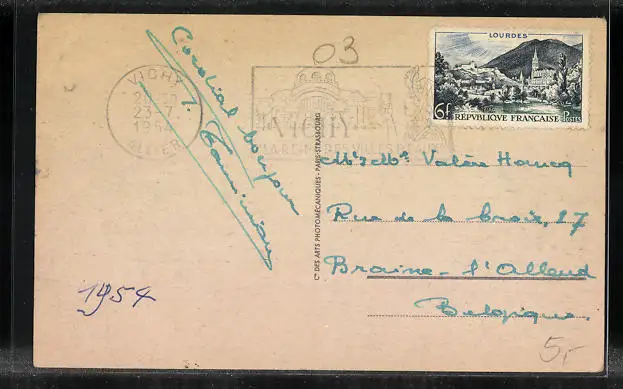 03
LOURDES
6f RÉPUBLIQUE FRANÇAISE POSTES
VICHY
23-7
1954
ALLIER
VICHY
LA REINE DES VILLES D'EAUX
Cordial bonjour
Cie DES ARTS PHOTOMÉCANIQUES - PARIS-STRASBOURG
Mr & Me Valère
Rue de la Croix, 27
Braine-l'Alleud
Belgique.
1954
5,-